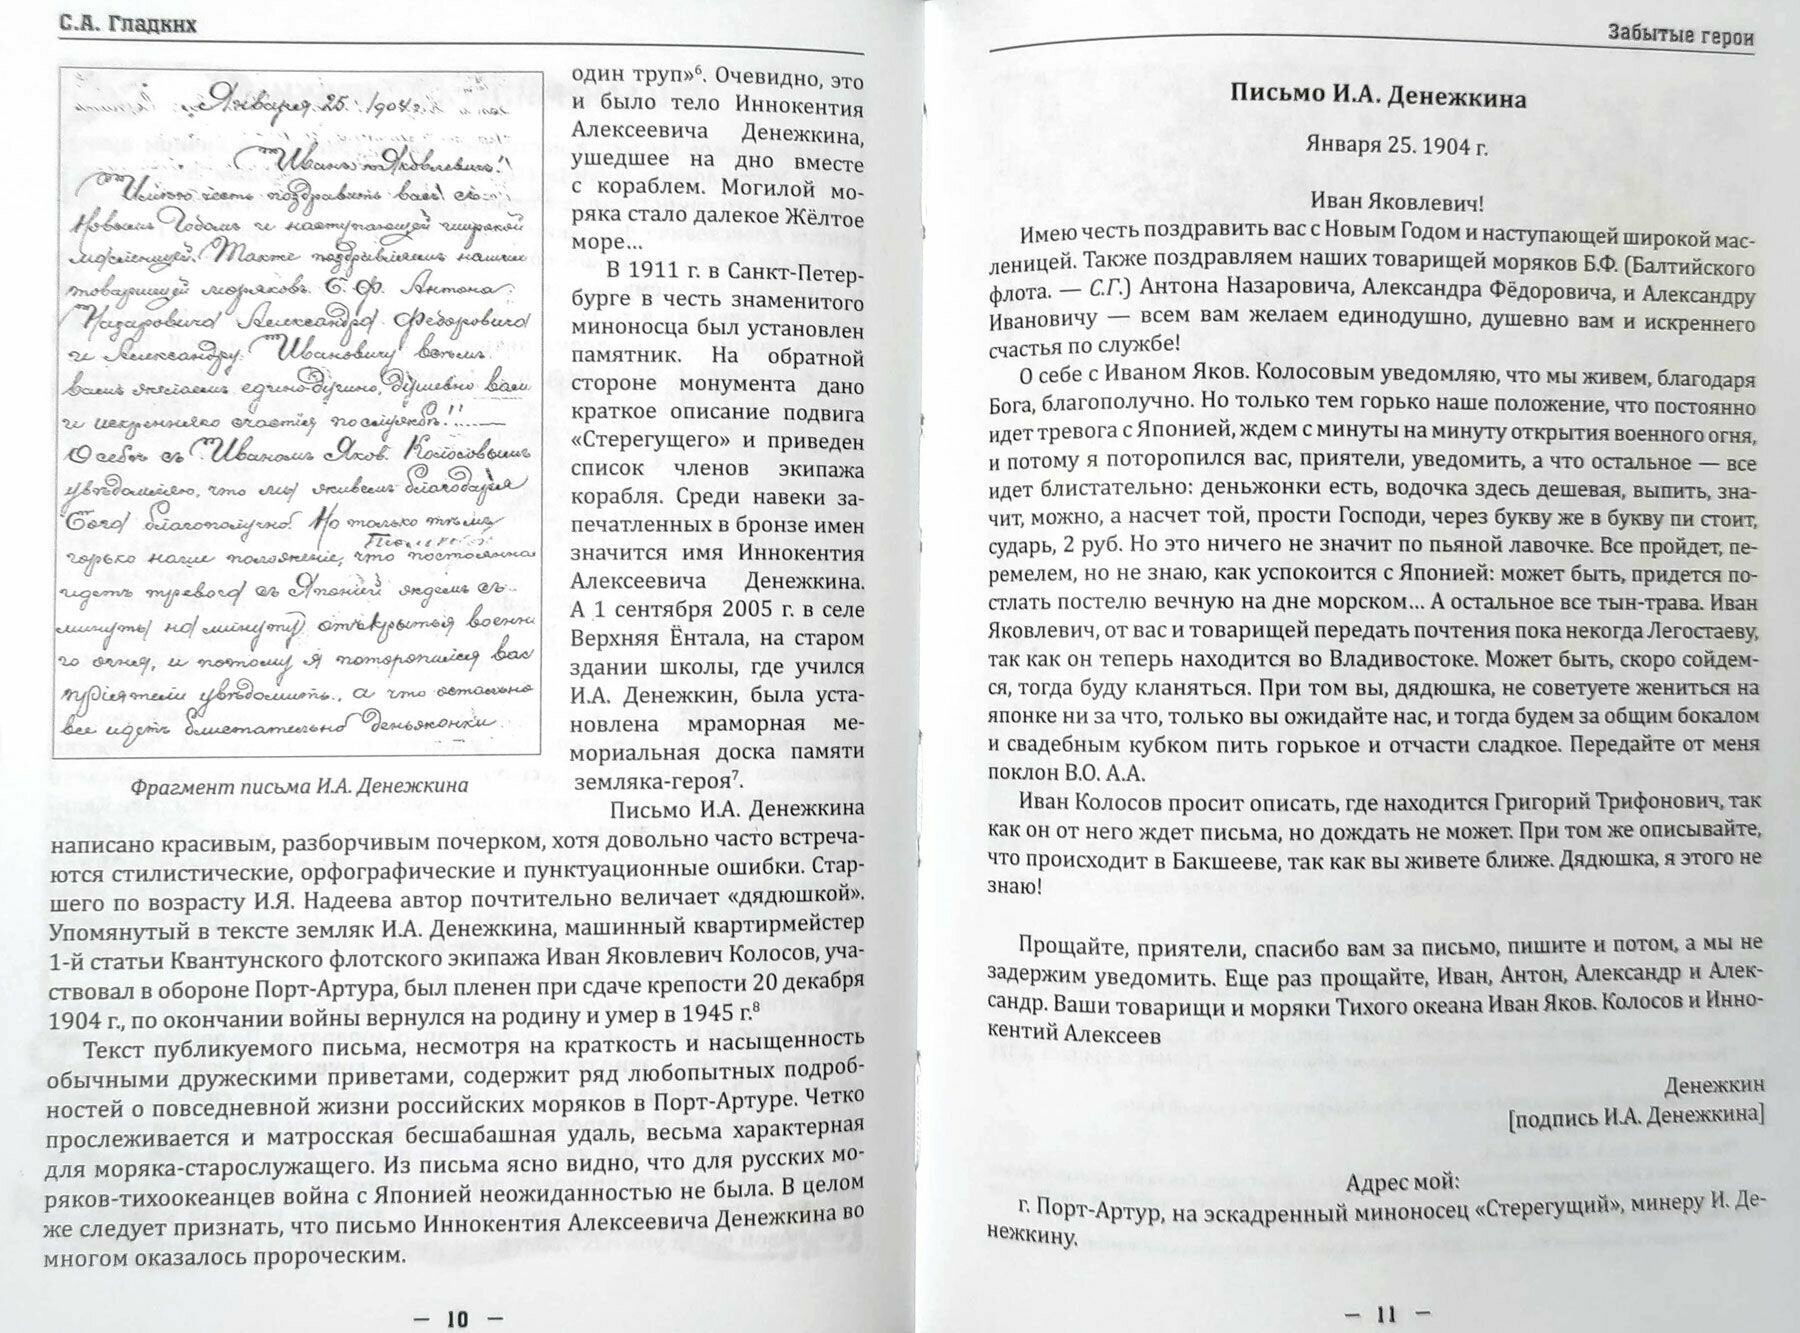 С.А. Гладких
Января 25. 1904 г.
Иванъ Яковлевичъ!
Имѣю честь поздравить васъ съ
Новымъ Годомъ и наступающей широкой
масленицей. Также поздравляемъ нашихъ
товарищей моряковъ Б. Ф. Антона
Назаровича Александра Федоровича
и Александру Ивановичу всѣмъ
вамъ желаемъ единодушно, душевно вамъ
и искренняго счастія по службѣ!
О себѣ съ Иваномъ Яков. Колосовымъ
увѣдомляю, что мы живемъ благодаря
Бога благополучно! Но только тѣмъ
горько наше положеніе, что постоянно
идетъ тревога съ Японіей ждемъ съ
минуты на минуту открытья военн
го огня, и потому я поторопился вас
пріятели увѣдомить, а что остально
все идетъ блистательно деньжонки
Фрагмент письма И.А. Денежкина
один труп»⁶. Очевидно, это
и было тело Иннокентия
Алексеевича Денежкина,
ушедшее на дно вместе
с кораблем. Могилой мо-
ряка стало далекое Жёлтое
море...
В 1911 г. в Санкт-Петер-
бурге в честь знаменитого
миноносца был установлен
памятник. На обратной
стороне монумента дано
краткое описание подвига
«Стерегущего» и приведен
список членов экипажа
корабля. Среди навеки за-
печатленных в бронзе имен
значится имя Иннокентия
Алексеевича Денежкина.
А 1 сентября 2005 г. в селе
Верхняя Ёнтала, на старом
здании школы, где учился
И.А. Денежкин, была уста-
новлена мраморная ме-
мориальная доска памяти
земляка-героя⁷.
Письмо И.А. Денежкина
написано красивым, разборчивым почерком, хотя довольно часто встреча-
ются стилистические, орфографические и пунктуационные ошибки. Стар-
шего по возрасту И.Я. Надеева автор почтительно величает «дядюшкой».
Упомянутый в тексте земляк И.А. Денежкина, машинный квартирмейстер
1-й статьи Квантунского флотского экипажа Иван Яковлевич Колосов, уча-
ствовал в обороне Порт-Артура, был пленен при сдаче крепости 20 декабря
1904 г., по окончании войны вернулся на родину и умер в 1945 г.⁸
Текст публикуемого письма, несмотря на краткость и насыщенность
обычными дружескими приветами, содержит ряд любопытных подроб-
ностей о повседневной жизни российских моряков в Порт-Артуре. Четко
прослеживается и матросская бесшабашная удаль, весьма характерная
для моряка-старослужащего. Из письма ясно видно, что для русских мо-
ряков-тихоокеанцев война с Японией неожиданностью не была. В целом
же следует признать, что письмо Иннокентия Алексеевича Денежкина во
многом оказалось пророческим.
— 10 —
Забытые герои
Письмо И.А. Денежкина
Января 25. 1904 г.
Иван Яковлевич!
Имею честь поздравить вас с Новым Годом и наступающей широкой мас-
леницей. Также поздравляем наших товарищей моряков Б.Ф. (Балтийского
флота. — С.Г.) Антона Назаровича, Александра Фёдоровича, и Александру
Ивановичу — всем вам желаем единодушно, душевно вам и искреннего
счастья по службе!
О себе с Иваном Яков. Колосовым уведомляю, что мы живем, благодаря
Бога, благополучно. Но только тем горько наше положение, что постоянно
идет тревога с Японией, ждем с минуты на минуту открытия военного огня,
и потому я поторопился вас, приятели, уведомить, а что остальное — все
идет блистательно: деньжонки есть, водочка здесь дешевая, выпить, зна-
чит, можно, а насчет той, прости Господи, через букву же в букву пи стоит,
сударь, 2 руб. Но это ничего не значит по пьяной лавочке. Все пройдет, пе-
ремелем, но не знаю, как успокоится с Японией: может быть, придется по-
стлать постелю вечную на дне морском... А остальное все тын-трава. Иван
Яковлевич, от вас и товарищей передать почтения пока некогда Легостаеву,
так как он теперь находится во Владивостоке. Может быть, скоро сойдем-
ся, тогда буду кланяться. При том вы, дядюшка, не советуете жениться на
японке ни за что, только вы ожидайте нас, и тогда будем за общим бокалом
и свадебным кубком пить горькое и отчасти сладкое. Передайте от меня
поклон В.О. А.А.
Иван Колосов просит описать, где находится Григорий Трифонович, так
как он от него ждет письма, но дождать не может. При том же описывайте,
что происходит в Бакшееве, так как вы живете ближе. Дядюшка, я этого не
знаю!
Прощайте, приятели, спасибо вам за письмо, пишите и потом, а мы не
задержим уведомить. Еще раз прощайте, Иван, Антон, Александр и Алек-
сандр. Ваши товарищи и моряки Тихого океана Иван Яков. Колосов и Инно-
кентий Алексеев
Денежкин
[подпись И.А. Денежкина]
Адрес мой:
г. Порт-Артур, на эскадренный миноносец «Стерегущий», минеру И. Де-
нежкину.
— 11 —